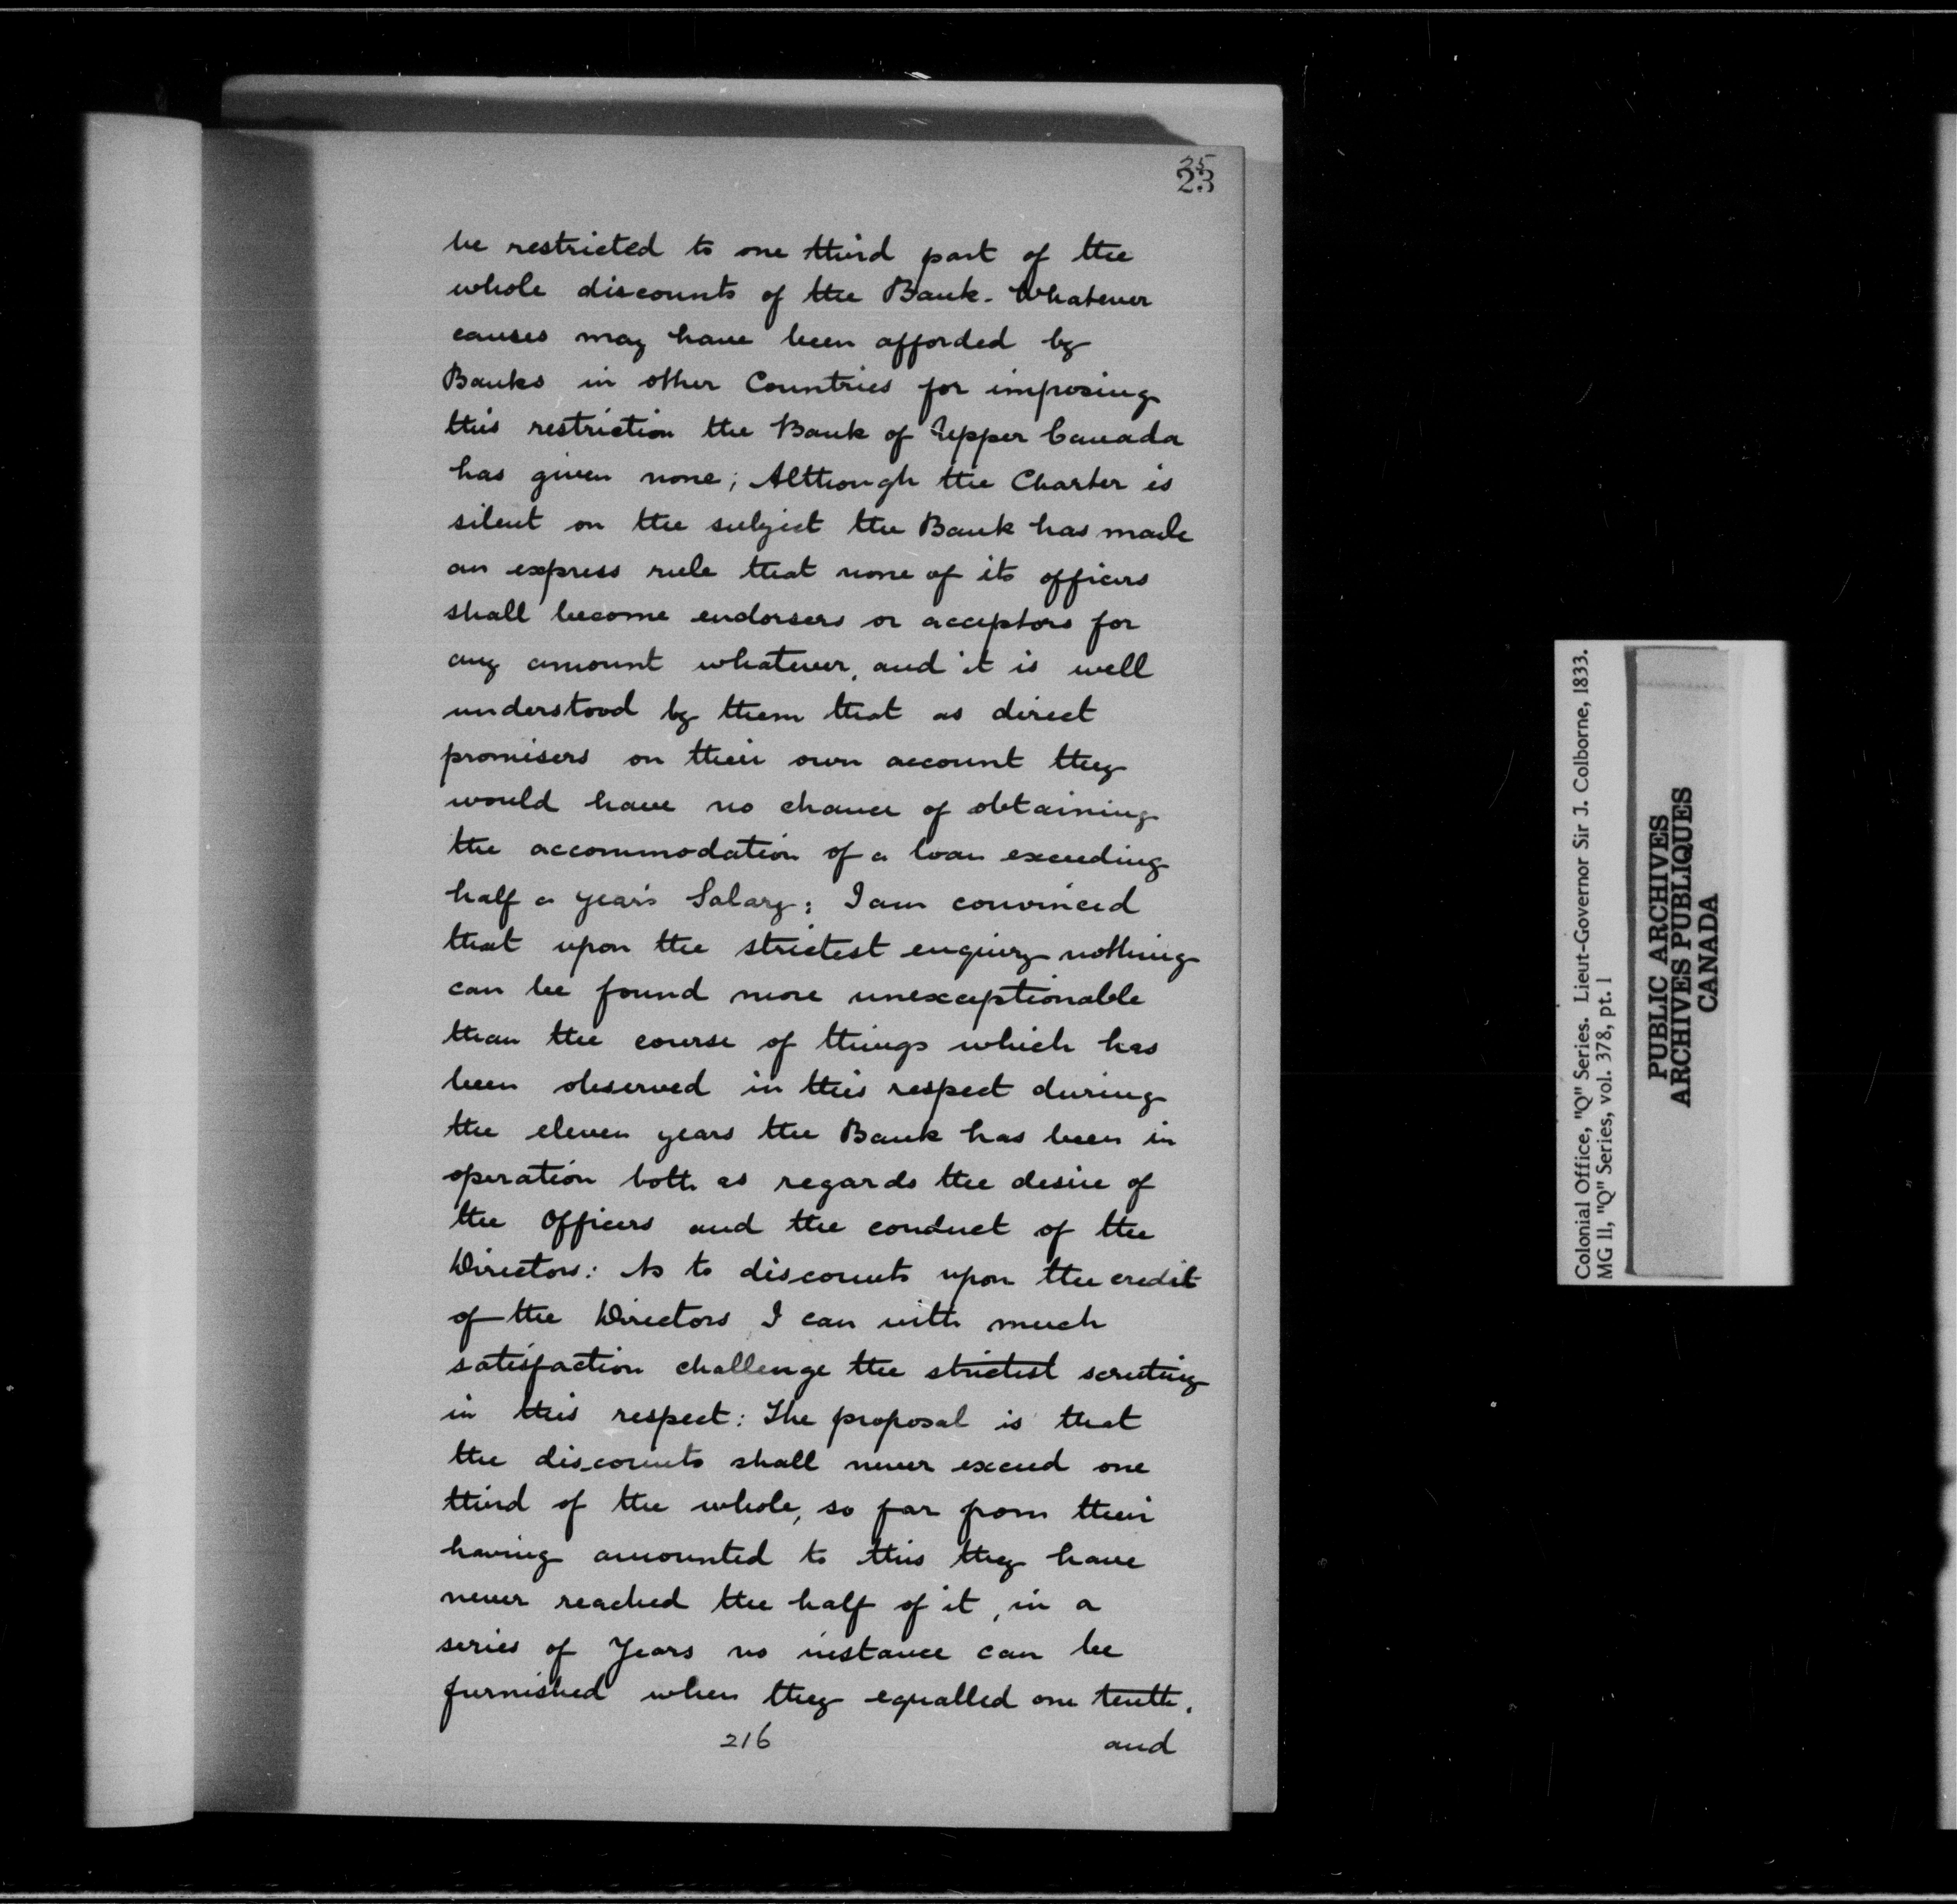 25
23
be restricted to one third part of the
whole discounts of the Bank. Whatever
causes may have been afforded by
Banks in other Countries for imposing
this restriction the Bank of Upper Canada
has given none; Although the Charter is
silent on the subject the Bank has made
an express rule that none of its officers
shall become endorsers or acceptors for
any amount whatever, and it is well
understood by them that as direct
promisers on their own account they
would have no chance of obtaining
the accommodation of a loan exceeding
half a year's Salary: I am convinced
that upon the strictest enquiry nothing
can be found more unexceptionable
than the course of things which has
been observed in this respect during
the eleven years the Bank has been in
operation both as regards the desire of
the Officers and the conduct of the
Directors: As to discounts upon the credit
of the Directors, I can with much
satisfaction challenge the strictest scrutiny
in this respect: The proposal is that
the discounts shall never exceed one
third of the whole, so far from their
having amounted to this they have
never reached the half of it, in a
series of Years no instance can be
furnished when they equalled one tenth,
216 and
Colonial Office, "Q" Series. Lieut-Governor Sir J. Colborne, 1833.
MG 11, "Q" Series, vol. 378, pt. 1
PUBLIC ARCHIVES
ARCHIVES PUBLIQUES
CANADA